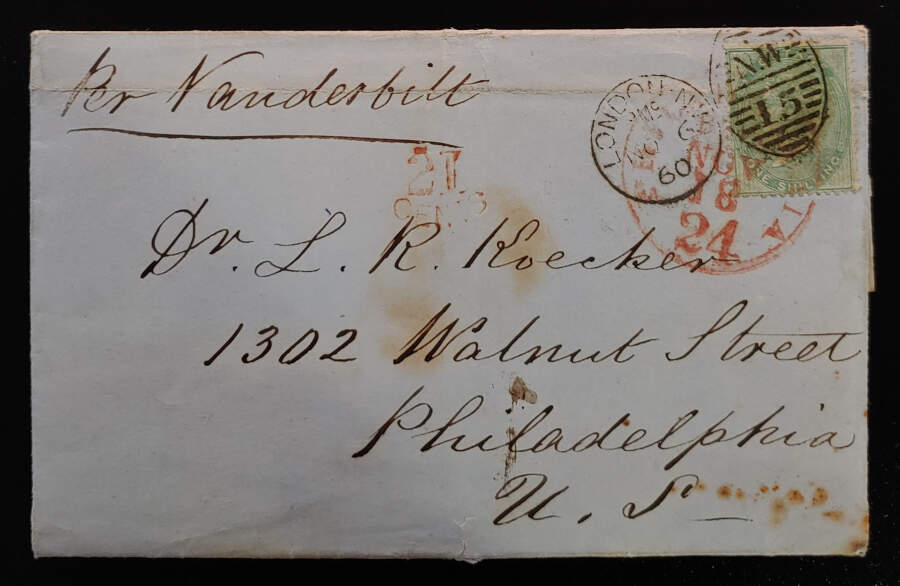 Per Vanderbilt
LONDON-N.W
NO 6
60
N.W
15
ONE SHILLING
21
CENTS
NOV
18
24
Dr. L. R. Koecker
1302 Walnut Street
Philadelphia
U. S